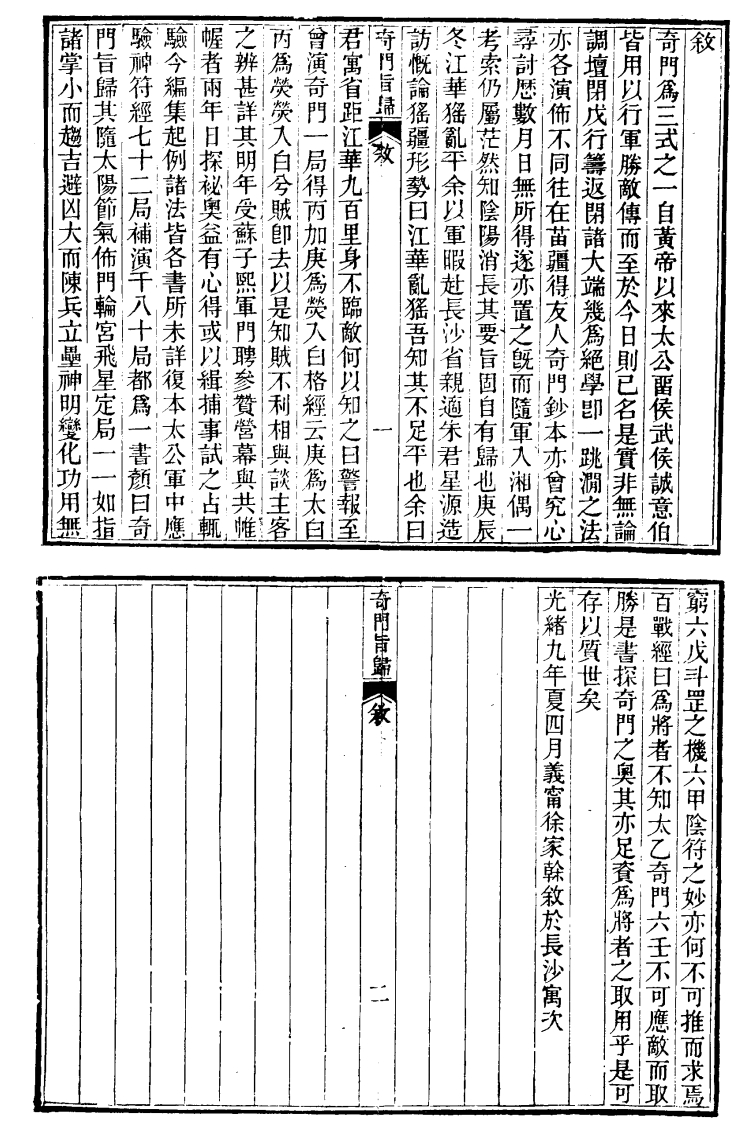 敘
奇門爲三式之一自黃帝以來太公畱侯武侯誠意伯
皆用以行軍勝敵傳而至於今日則已名是實非無論
調壇閉戊行籌返閉諸大端幾爲絕學卽一跳澗之法
亦各演佈不同往在苗疆得友人奇門鈔本亦曾究心
尋討歷數月日無所得遂亦置之旣而隨軍入湘偶一
考索仍屬茫然知陰陽消長其要旨固自有歸也庚辰
冬江華猺亂平余以軍暇赴長沙省親適朱君星源造
訪慨論猺疆形勢曰江華亂猺吾知其不足平也余曰
奇門旨歸 敘 一
君寓省距江華九百里身不臨敵何以知之曰警報至
曾演奇門一局得丙加庚爲熒入白格經云庚爲太白
丙爲熒熒入白兮賊卽去以是知賊不利相與談主客
之辨甚詳其明年受蘇子熙軍門聘參贊營幕與共帷
幄者兩年日探祕奧益有心得或以緝捕事試之占輒
驗今編集起例諸法皆各書所未詳復本太公軍中應
驗神符經七十二局補演千八十局都爲一書顏曰奇
門旨歸其隨太陽節氣佈門輪宮飛星定局一一如指
諸掌小而趨吉避凶大而陳兵立壘神明變化功用無
窮六戊斗罡之機六甲陰符之妙亦何不可推而求焉
百戰經曰爲將者不知太乙奇門六壬不可應敵而取
勝是書探奇門之奧其亦足資爲將者之取用乎是可
存以質世矣
光緒九年夏四月義甯徐家幹敘於長沙寓次
奇門旨歸 敘 二